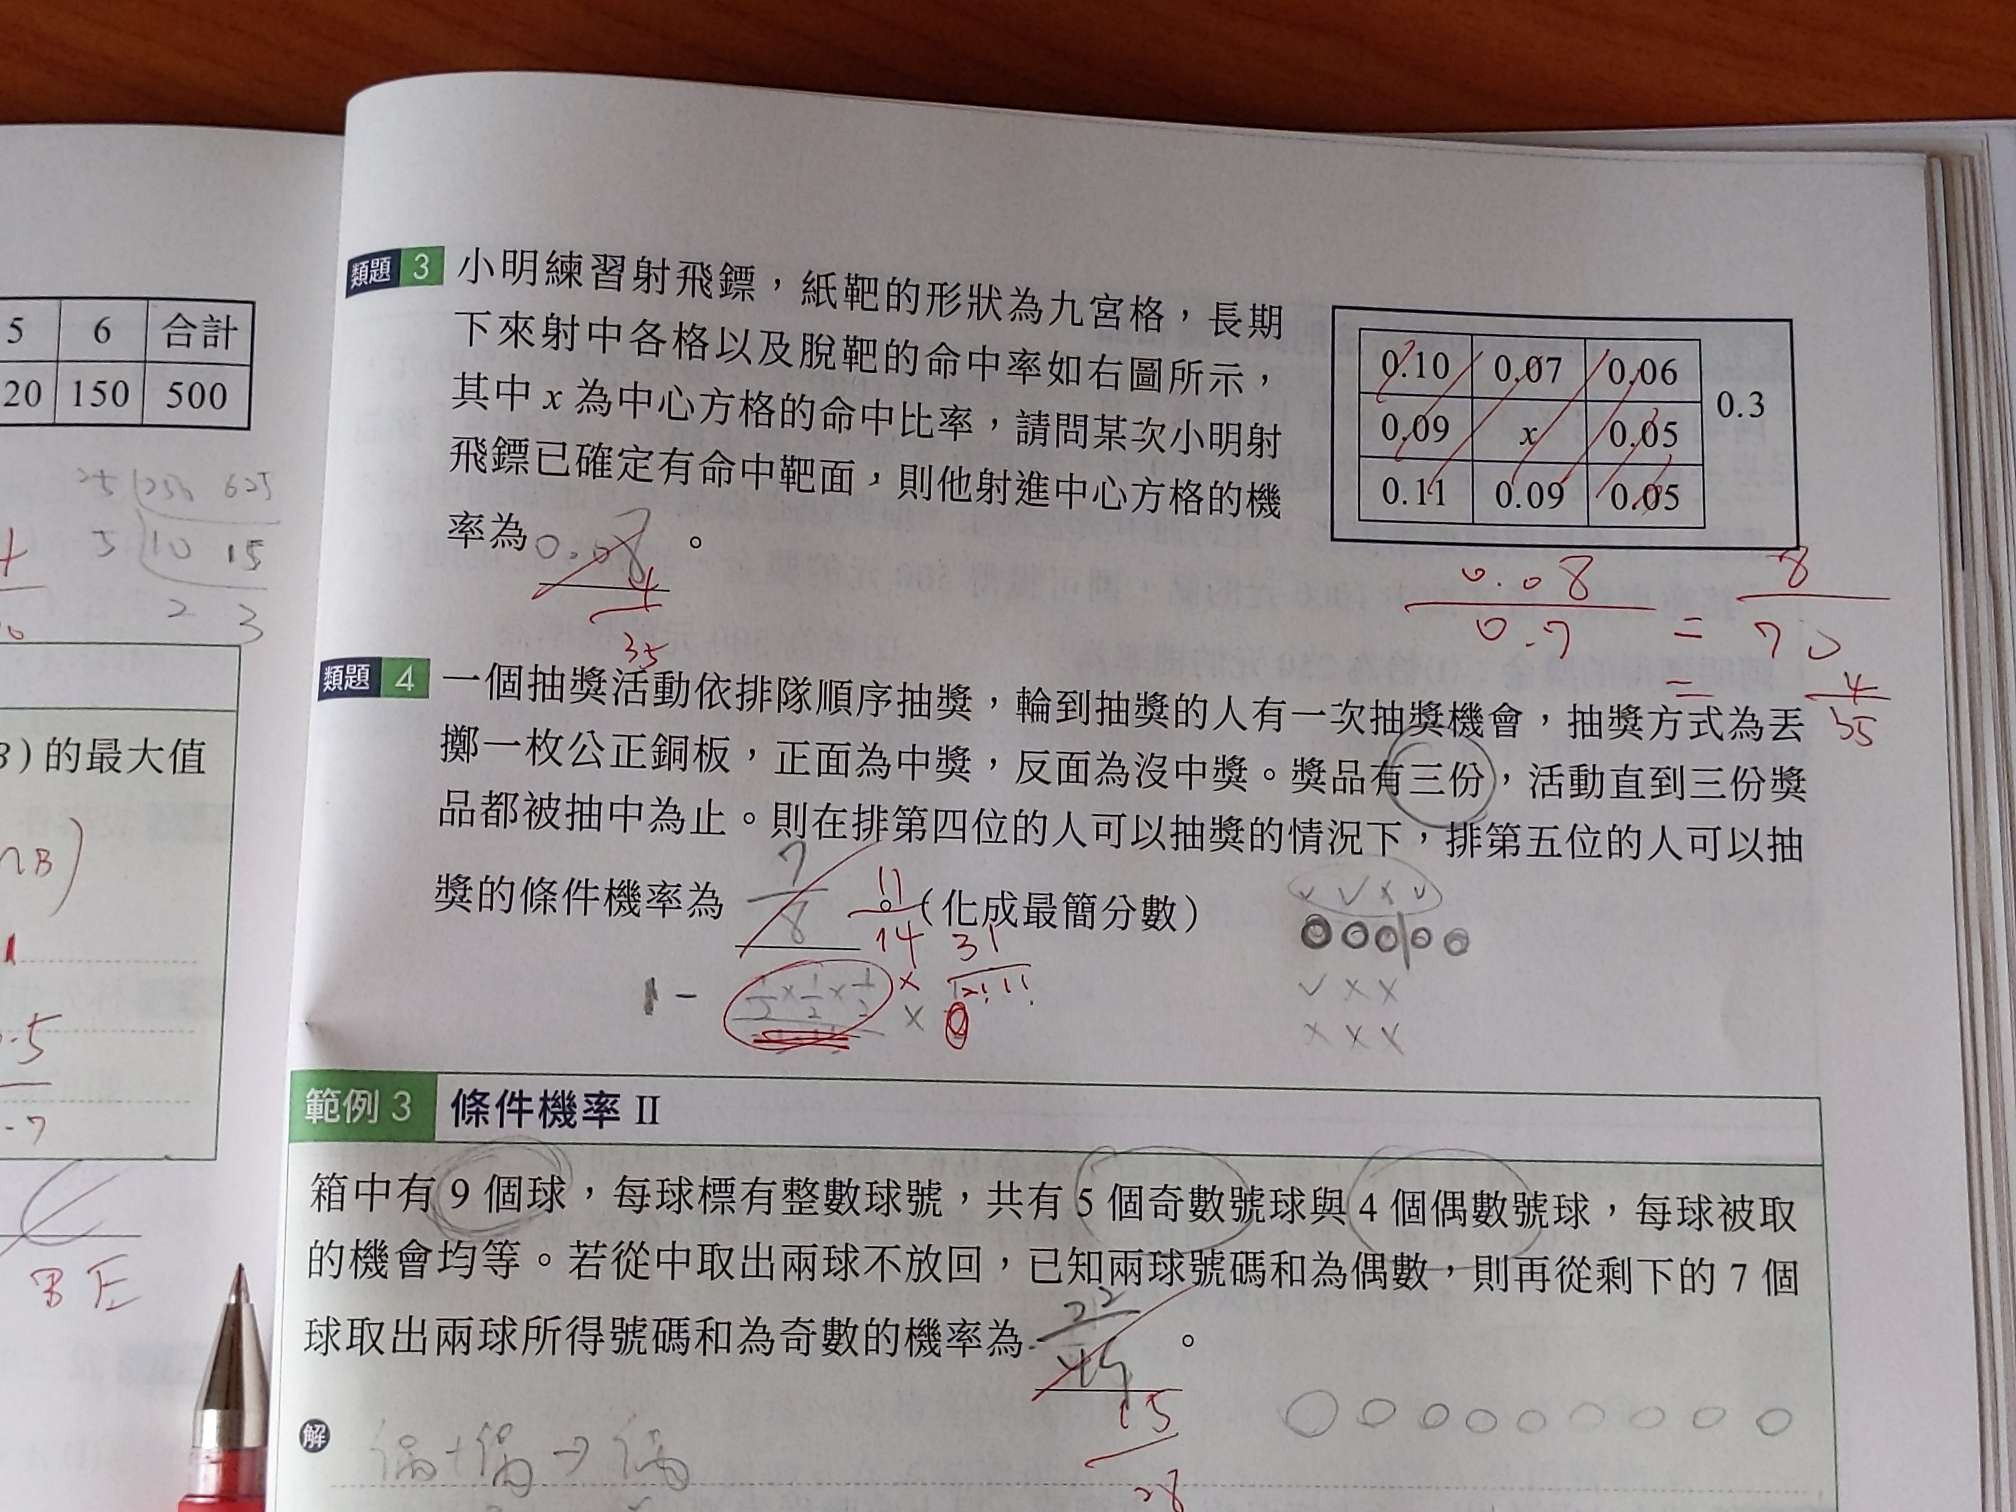 5 6 合計
20 150 500
25 250 625
5 10 15
2 3
B)的最大值
∩B)
.5
.7
B E
類題 3 小明練習射飛鏢，紙靶的形狀為九宮格，長期
下來射中各格以及脫靶的命中率如右圖所示，
其中 x 為中心方格的命中比率，請問某次小明射
飛鏢已確定有命中靶面，則他射進中心方格的機
率為 。
4
35
0.10 0.07 0.06
0.09 x 0.05
0.11 0.09 0.05
0.3
0.08 8
0.7 = 70
= 4
35
類題 4 一個抽獎活動依排隊順序抽獎，輪到抽獎的人有一次抽獎機會，抽獎方式為丟
擲一枚公正銅板，正面為中獎，反面為沒中獎。獎品有三份，活動直到三份獎
品都被抽中為止。則在排第四位的人可以抽獎的情況下，排第五位的人可以抽
獎的條件機率為 7 11 (化成最簡分數)
8 14
1 - 1/2 × 1/2 × 1/2 × 3!
2!1!
範例 3 條件機率 II
箱中有 9 個球，每球標有整數球號，共有 5 個奇數號球與 4 個偶數號球，每球被取
的機會均等。若從中取出兩球不放回，已知兩球號碼和為偶數，則再從剩下的 7 個
球取出兩球所得號碼和為奇數的機率為 。
22
15
28
解 偶+偶→偶